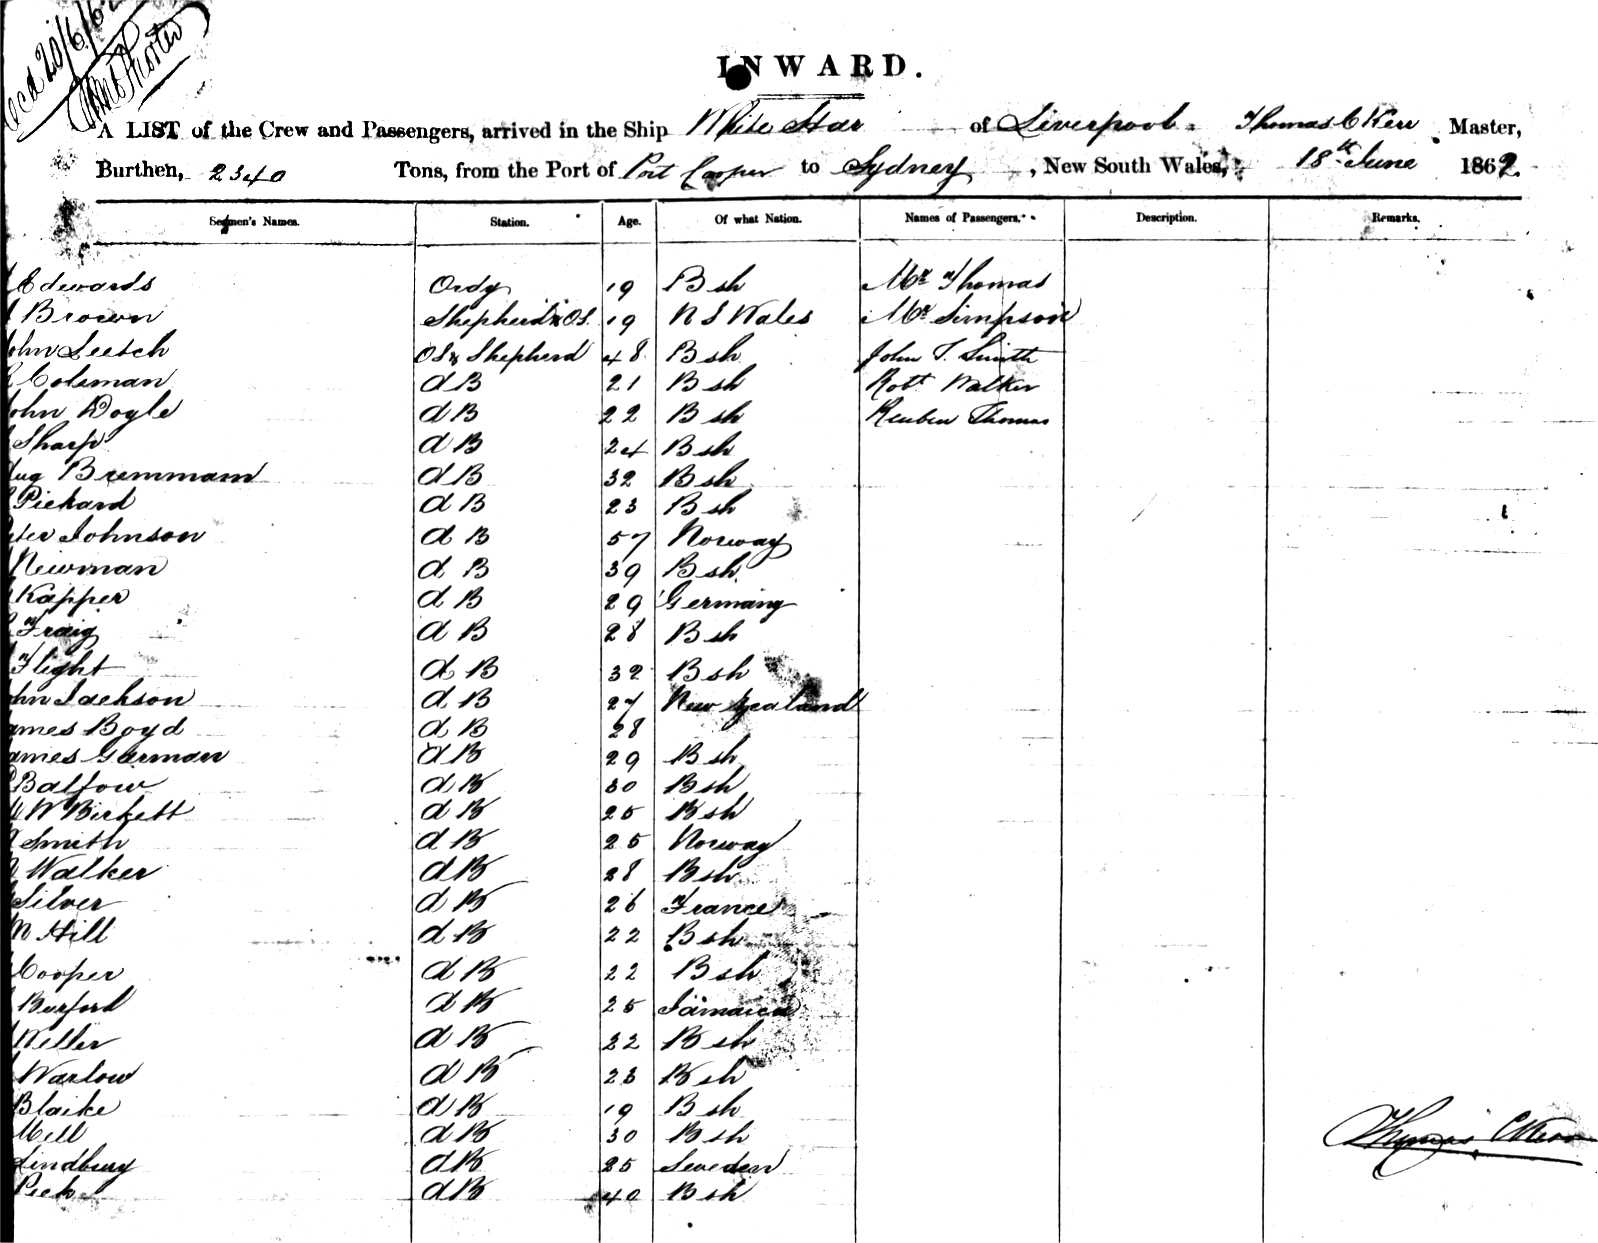 Recd 20/6/62
INWARD.
A LIST of the Crew and Passengers, arrived in the Ship White Star of Liverpool Thomas C Kerr Master,
Burthen, 2340 Tons, from the Port of Port Cooper to Sydney, New South Wales, 18th June 1862
Seamen's Names. Station. Age. Of what Nation. Names of Passengers. Description. Remarks.
Edwards Ordy 19 Bsh Mr Thomas
Brown Shepherd & OS. 19 N S Wales Mr Simpson
John Leetch OS & Shepherd 48 Bsh John T. Smith
Coleman AB 21 Bsh Robt Walker
John Doyle AB 22 Bsh Reuben Thomas
Sharp AB 24 Bsh
Aug Bremmam AB 32 Bsh
Pickard AB 23 Bsh
Peter Johnson AB 57 Norway
Newman AB 39 Bsh
Kapper AB 29 Germany
Fraig AB 28 Bsh
Flight AB 32 Bsh
John Jackson AB 27 New Zealand
James Boyd AB 28
James Garman AB 29 Bsh
Balfow AB 30 Bsh
W Birkett AB 25 Bsh
Smith AB 25 Norway
Walker AB 28 Bsh
Silver AB 26 France
Hill AB 22 Bsh
Cooper AB 22 Bsh
Burford AB 25 Jamaica
Weller AB 22 Bsh
Warlow AB 23 Bsh
Blaike AB 19 Bsh
Mell AB 30 Bsh
Lindbury AB 25 Sweden
Peek AB 40 Bsh
Thomas C Kerr